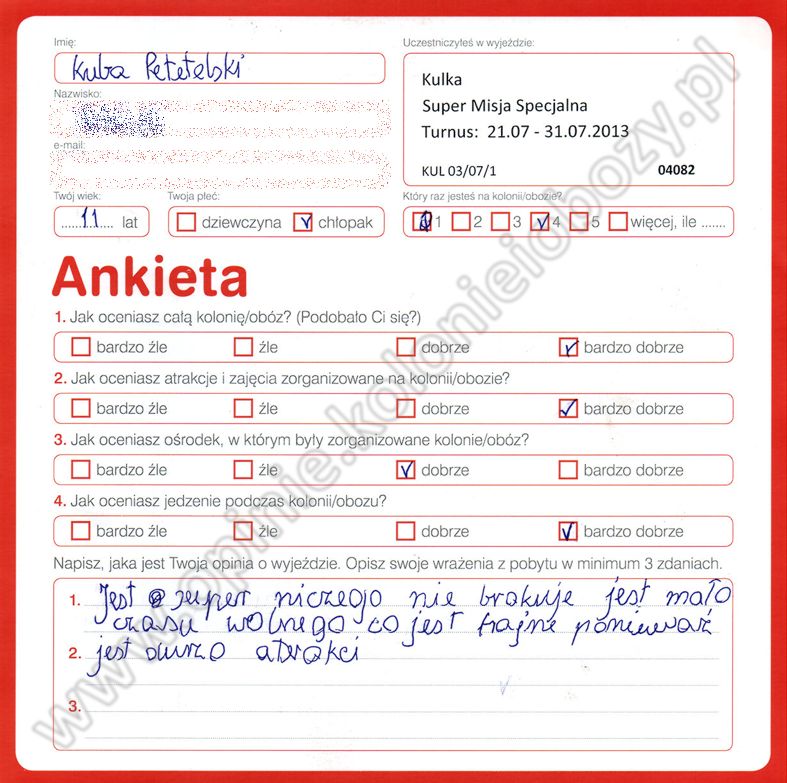 Imię:
Kuba Petelski
Uczestniczyłeś w wyjeździe:
Kulka
Super Misja Specjalna
Turnus: 21.07 - 31.07.2013
KUL 03/07/1 04082
Nazwisko:
e-mail:
Twój wiek:
11 lat
Twoja płeć:
dziewczyna chłopak
Który raz jesteś na kolonii/obozie?
1 2 3 4 5 więcej, ile .......
Ankieta
1. Jak oceniasz całą kolonię/obóz? (Podobało Ci się?)
bardzo źle źle dobrze bardzo dobrze
2. Jak oceniasz atrakcje i zajęcia zorganizowane na kolonii/obozie?
bardzo źle źle dobrze bardzo dobrze
3. Jak oceniasz ośrodek, w którym były zorganizowane kolonie/obóz?
bardzo źle źle dobrze bardzo dobrze
4. Jak oceniasz jedzenie podczas kolonii/obozu?
bardzo źle źle dobrze bardzo dobrze
Napisz, jaka jest Twoja opinia o wyjeździe. Opisz swoje wrażenia z pobytu w minimum 3 zdaniach.
1. Jest super niczego nie brakuje jest mało
czasu wolnego co jest fajne poniewarz
2. jest durzo atrakci
3.
www.opinie.kolonieiobozy.pl